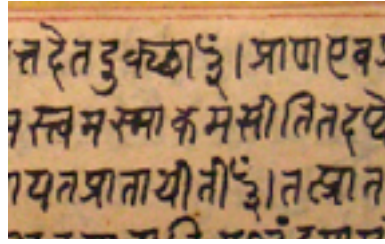 त्तदेतदुक्था३ँ।प्राणएव
स्त्वमस्माकमसीतितदप्ये
यतप्रातायीती३ँ।तत्प्रात